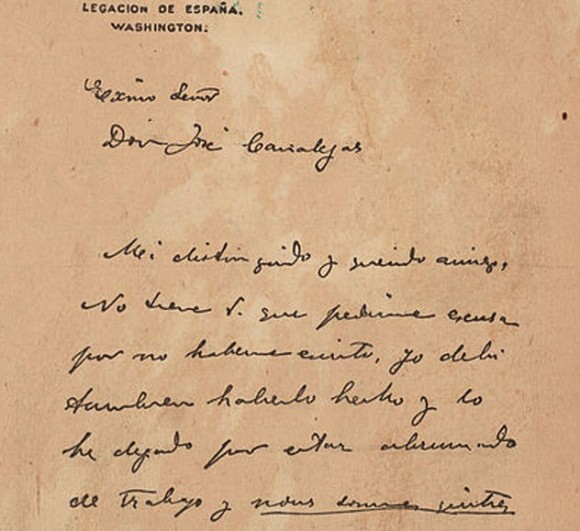 LEGACION DE ESPAÑA.
WASHINGTON.
Eximo Señor
Don José Canalejas
Mi distinguido y querido amigo,
No tiene V. que pedirme excusa
por no haberme escrito, yo debí
tambien haberlo hecho y lo
he dejado por estar abrumado
de trabajo y nous sommes quittes